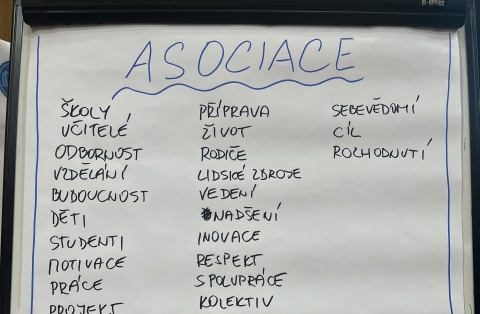 ASOCIACE
ŠKOLY
UČITELÉ
ODBORNOST
VZDĚLÁNÍ
BUDOUCNOST
DĚTI
STUDENTI
MOTIVACE
PRÁCE
PROJEKT
PŘÍPRAVA
ŽIVOT
RODIČE
LIDSKÉ ZDROJE
VEDENÍ
NADŠENÍ
INOVACE
RESPEKT
SPOLUPRÁCE
KOLEKTIV
SEBEVĚDOMÍ
CÍL
ROZHODNUTÍ